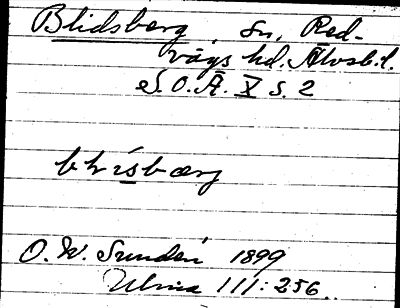 Blidsberg, sn, Red-
vägs hd. Älvsb. l.
S.O.Ä. X s. 2
blisbærg
O. W. Sundén 1899
Ulma III: 256